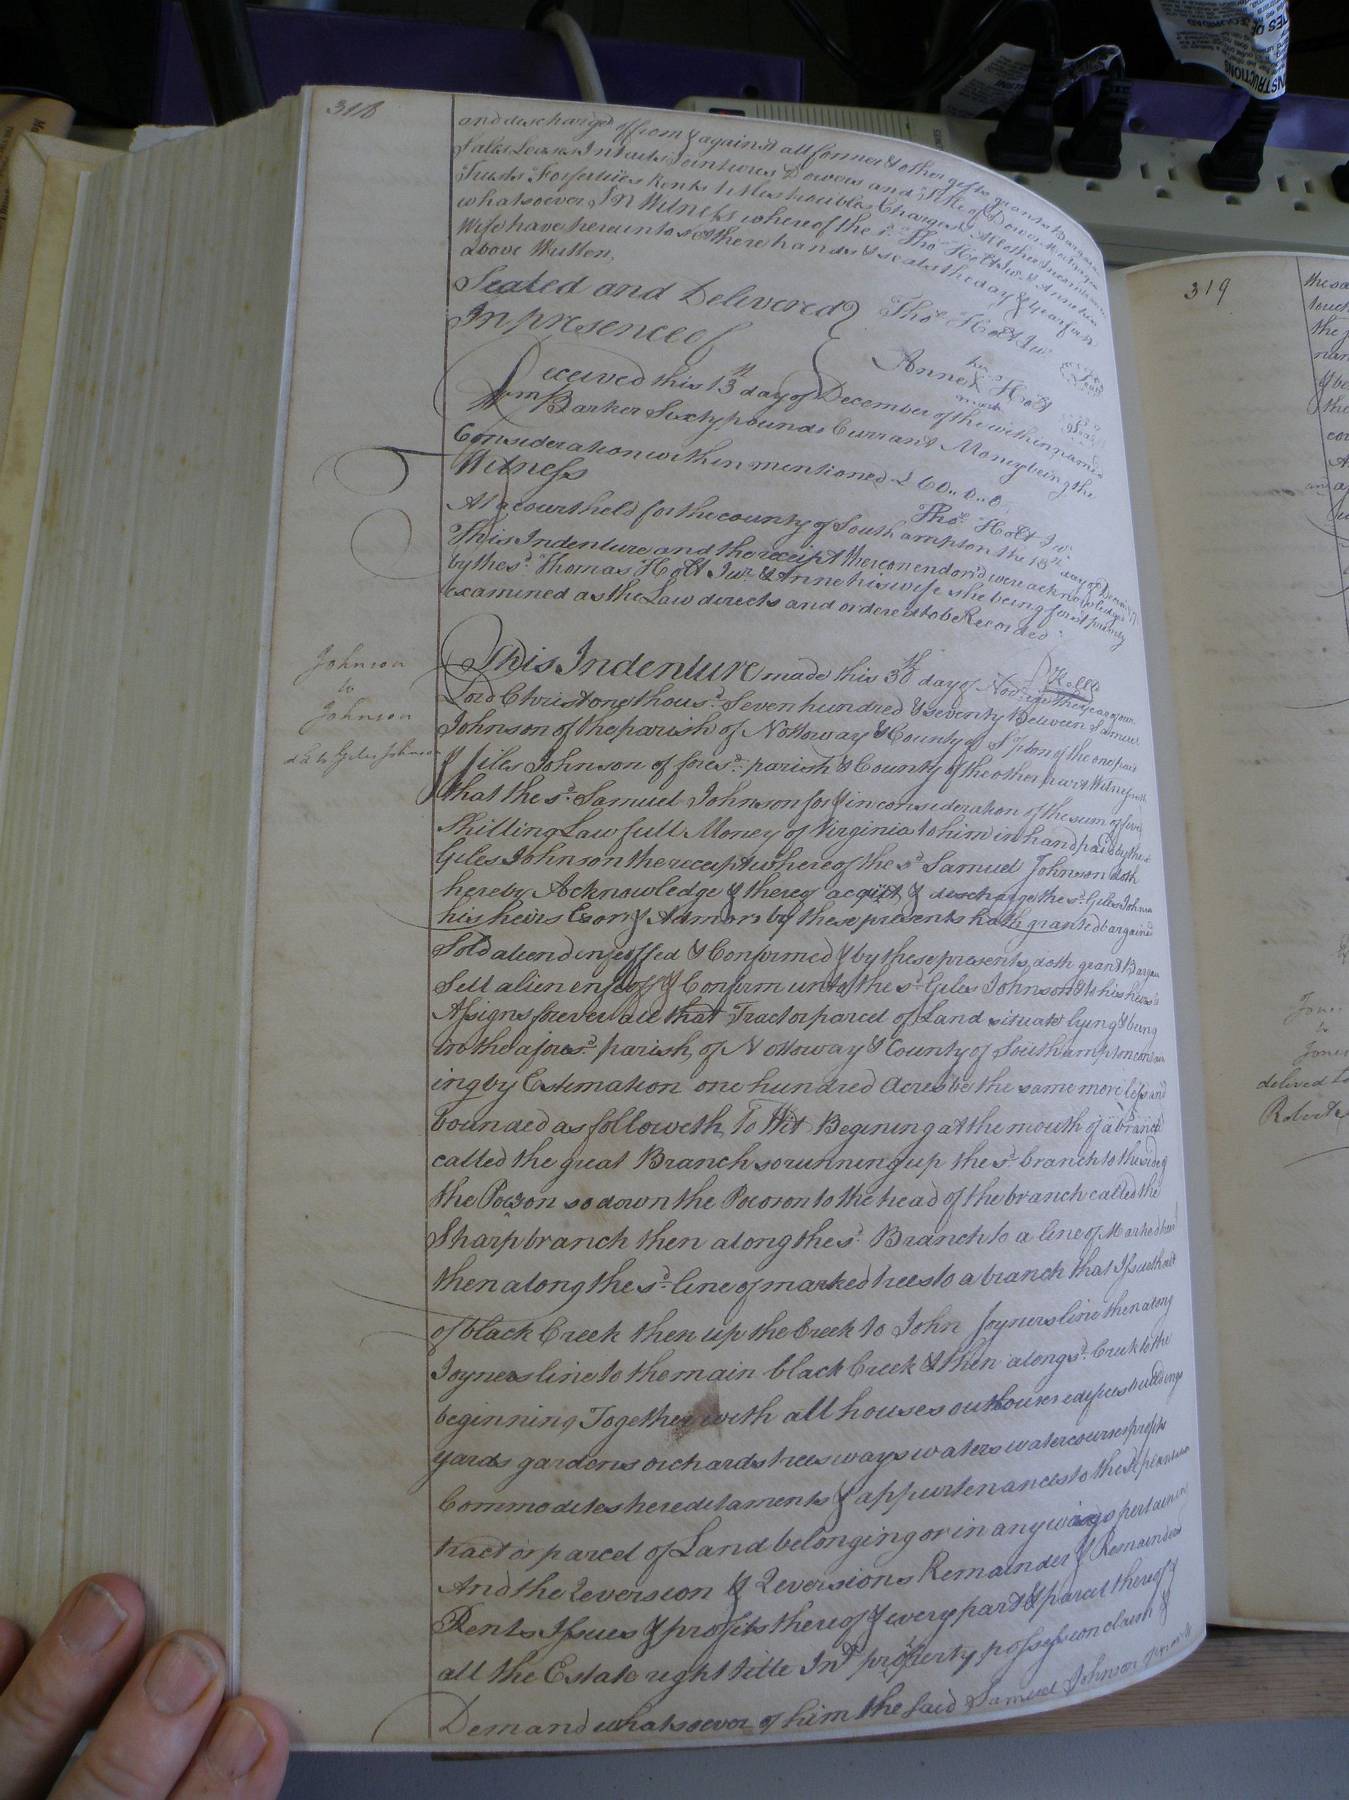 318
and discharged of from & against all former & other gifts grants Bargains
Sales Leases Intails Jointures Dowers and Title of Dower Mortgages
Trusts Forfeitures Rents titles troubles Charges & All other Incumbrances
whatsoever In Witness whereof the sd. Thos Holt Junr. & Anne his
Wife have hereinto set there hands & seals the day & year first
above Written,
Sealed and Delivered
In presence of
Thos Holt Jur.
Anne Holt
her
mark
Received this 13th day of December of the within named
Wm Barker Sixty pounds Currant Money being the
Consideration within mentioned £60..0..0
Witness
Thos. Holt Jur.
At a court held for the county of Southampton the 13th day of Decem
This Indenture and the receipt thereon endors'd were acknowledged
by the sd. Thomas Holt Jur. & Anne his wife she being first privily
Examined as the Law directs and ordered to be Recorded
Johnson
to
Johnson
dd to Giles Johnson
This Indenture made this 30th day of Nov. in the year of our
Lord Christ one thousd. Seven hundred & seventy Between Samuel
Johnson of the parish of Nottoway & County of Sthton of the one part
& Giles Johnson of foresd. parish & County of the other part Witnesseth
that the sd. Samuel Johnson for & in consideration of the sum of five
Shilling Lawfull Money of Virginia to him in hand paid by the sd
Giles Johnson the receipt whereof the sd Samuel Johnson doth
hereby Acknowledge & thereof acquit & discharge the sd. Giles Johnson
his heirs Exors & Admors by these presents hath granted bargained
Sold aliend infeoffed & Confirmed & by these presents doth grant Bargain
Sell alien enfeoff & Confirm unto the sd. Giles Johnson & to his heirs &
Assigns forever all that Tract or parcel of Land situate lying & being
in the aforesd. parish, of Nottoway & County of Southampton contain
ing by Estimation one hundred Acres be the same more or less and
bounded as followeth, To Wit Begining at the mouth of a branch
called the great Branch so running up the sd. branch to the side of
the Pocoson so down the Pocoson to the head of the branch called the
Sharp branch then along the sd. Branch to a line of Marked trees
then along the sd. line of marked trees to a branch that Issueth out
of black Creek then up the Creek to John Joyners line then along
Joyners line to the main black Creek & then along sd. Creek to the
beginning Together with all houses outhouses edifices buildings
yards gardens orchards trees ways waters watercourses profits
Commodites hereditaments & appurtenances to the sd plantation
tract or parcel of Land belonging or in any ways pertaining
And the Reversion & Reversions Remainder & Remainders
Rents Issues & profits thereof & every part & parcel thereof &
all the Estate right title Int property possession claim &
Demand whatsoever of him the said Samuel Johnson of in or to
319
Jones
to
Jones